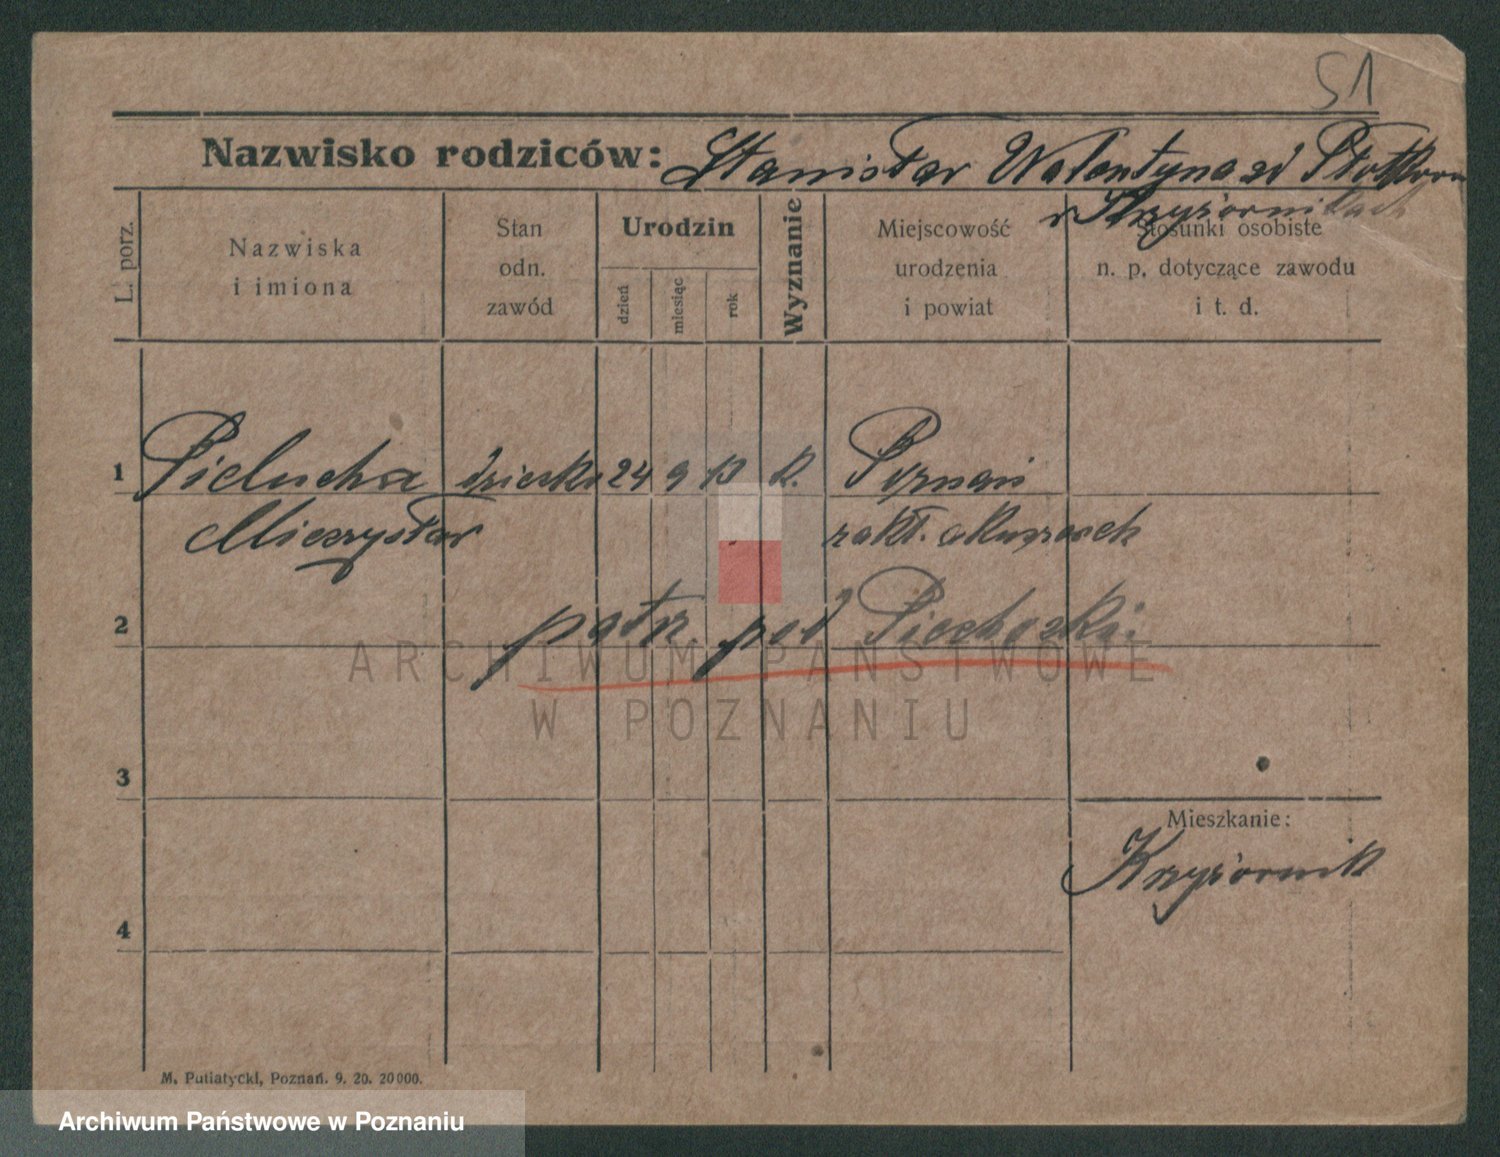 51
Nazwisko rodziców: Stanisław Walentyna zd
w Krzyżownikach
L. porz.
Nazwiska
i imiona
Stan
odn.
zawód
Urodzin
dzień
miesiąc
rok
Wyznanie
Miejscowość
urodzenia
i powiat
Stosunki osobiste
n. p. dotyczące zawodu
i t. d.
1 Pielucha dziecko 24 9 K. Poznań
Mieczysław zakł.
patrz pod Piechocki.
2
3
4
Mieszkanie:
Krzyżownik
ARCHIWUM PAŃSTWOWE
W POZNANIU
M. Putiatycki, Poznań. 9. 20. 20000.
Archiwum Państwowe w Poznaniu